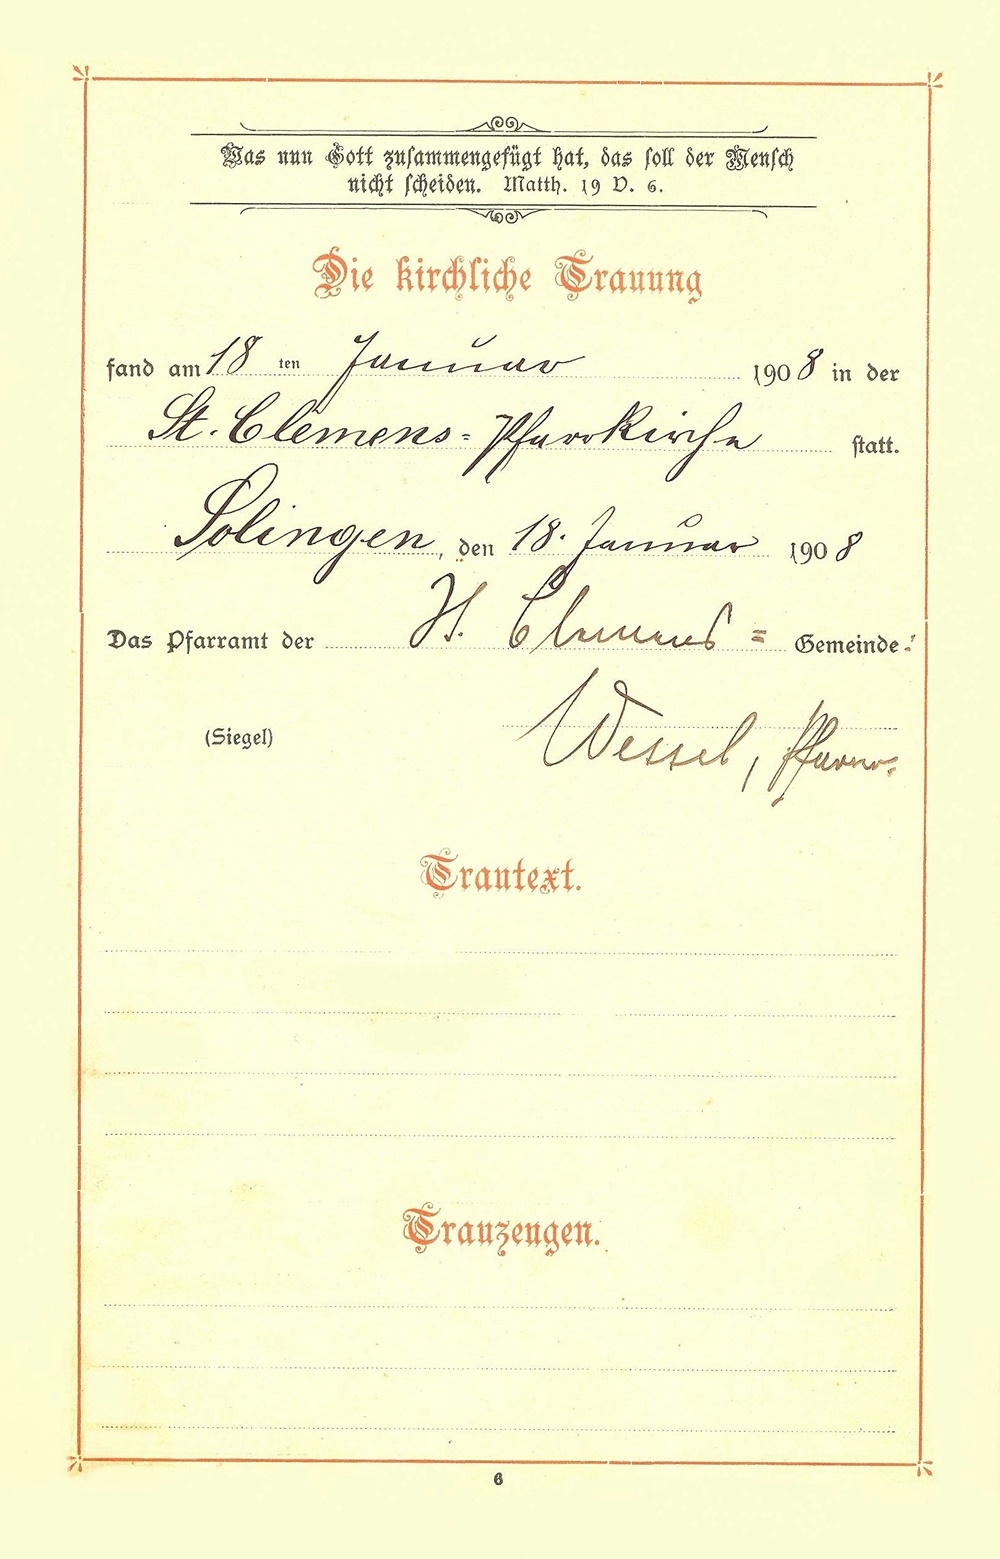 Was nun Gott zusammengefügt hat, das soll der Mensch
nicht scheiden. Matth. 19 V. 6.
Die kirchliche Trauung
fand am 18 ten Januar 1908 in der
St. Clemens=Pfarrkirche statt.
Solingen, den 18. Januar 1908
Das Pfarramt der St. Clemens= Gemeinde:
(Siegel) Wessel, Pfarrer.
Trautext.
Trauzeugen.
6